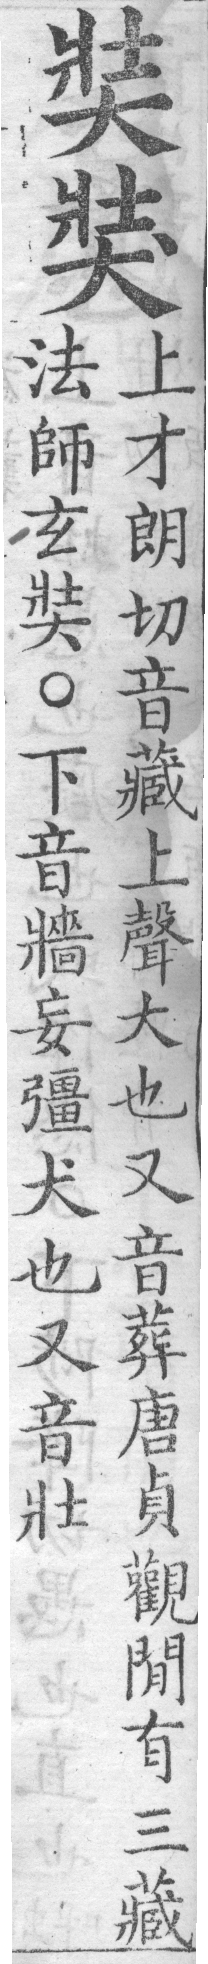 奘𡚍
上才朗切音藏上聲大也又音葬唐貞觀閒有三藏
法師玄奘○下音牆妄彊犬也又音壯